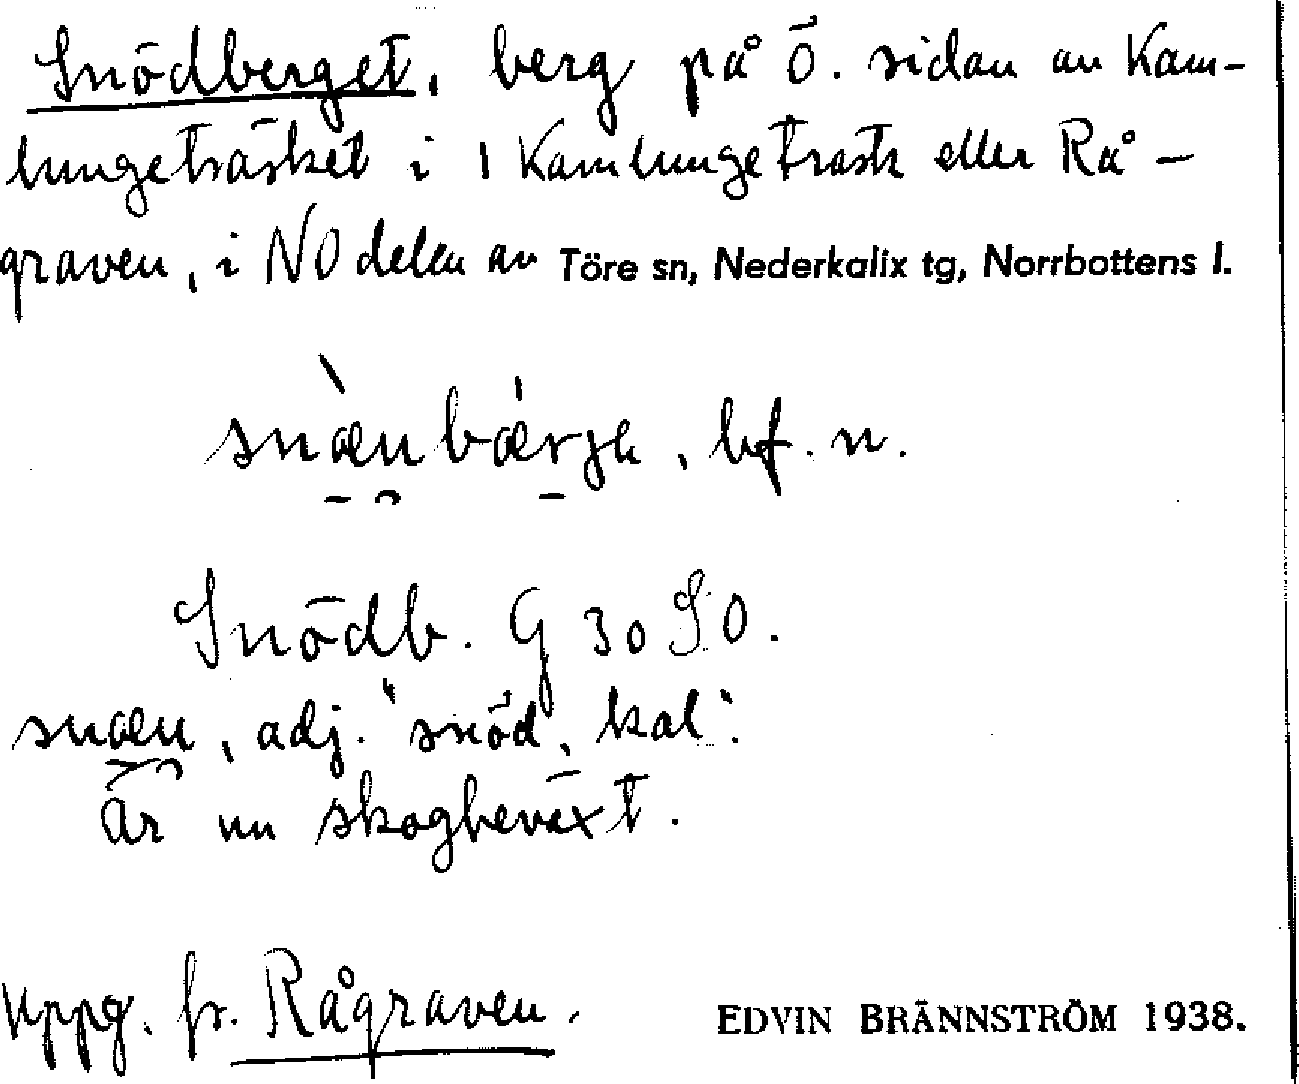 Snödberget, berg på Ö. sidan av Kam-
lungeträsket i 1 Kamlungeträsk eller Rå-
graven, i NO delen av Töre sn, Nederkalix tg, Norrbottens l.
snæn bærja, bf. n.
Snödb. G 30 SO.
snæn, adj. "snöd, kal".
är nu skogbeväxt.
Uppg. fr. Rågraven.
EDVIN BRÄNNSTRÖM 1938.